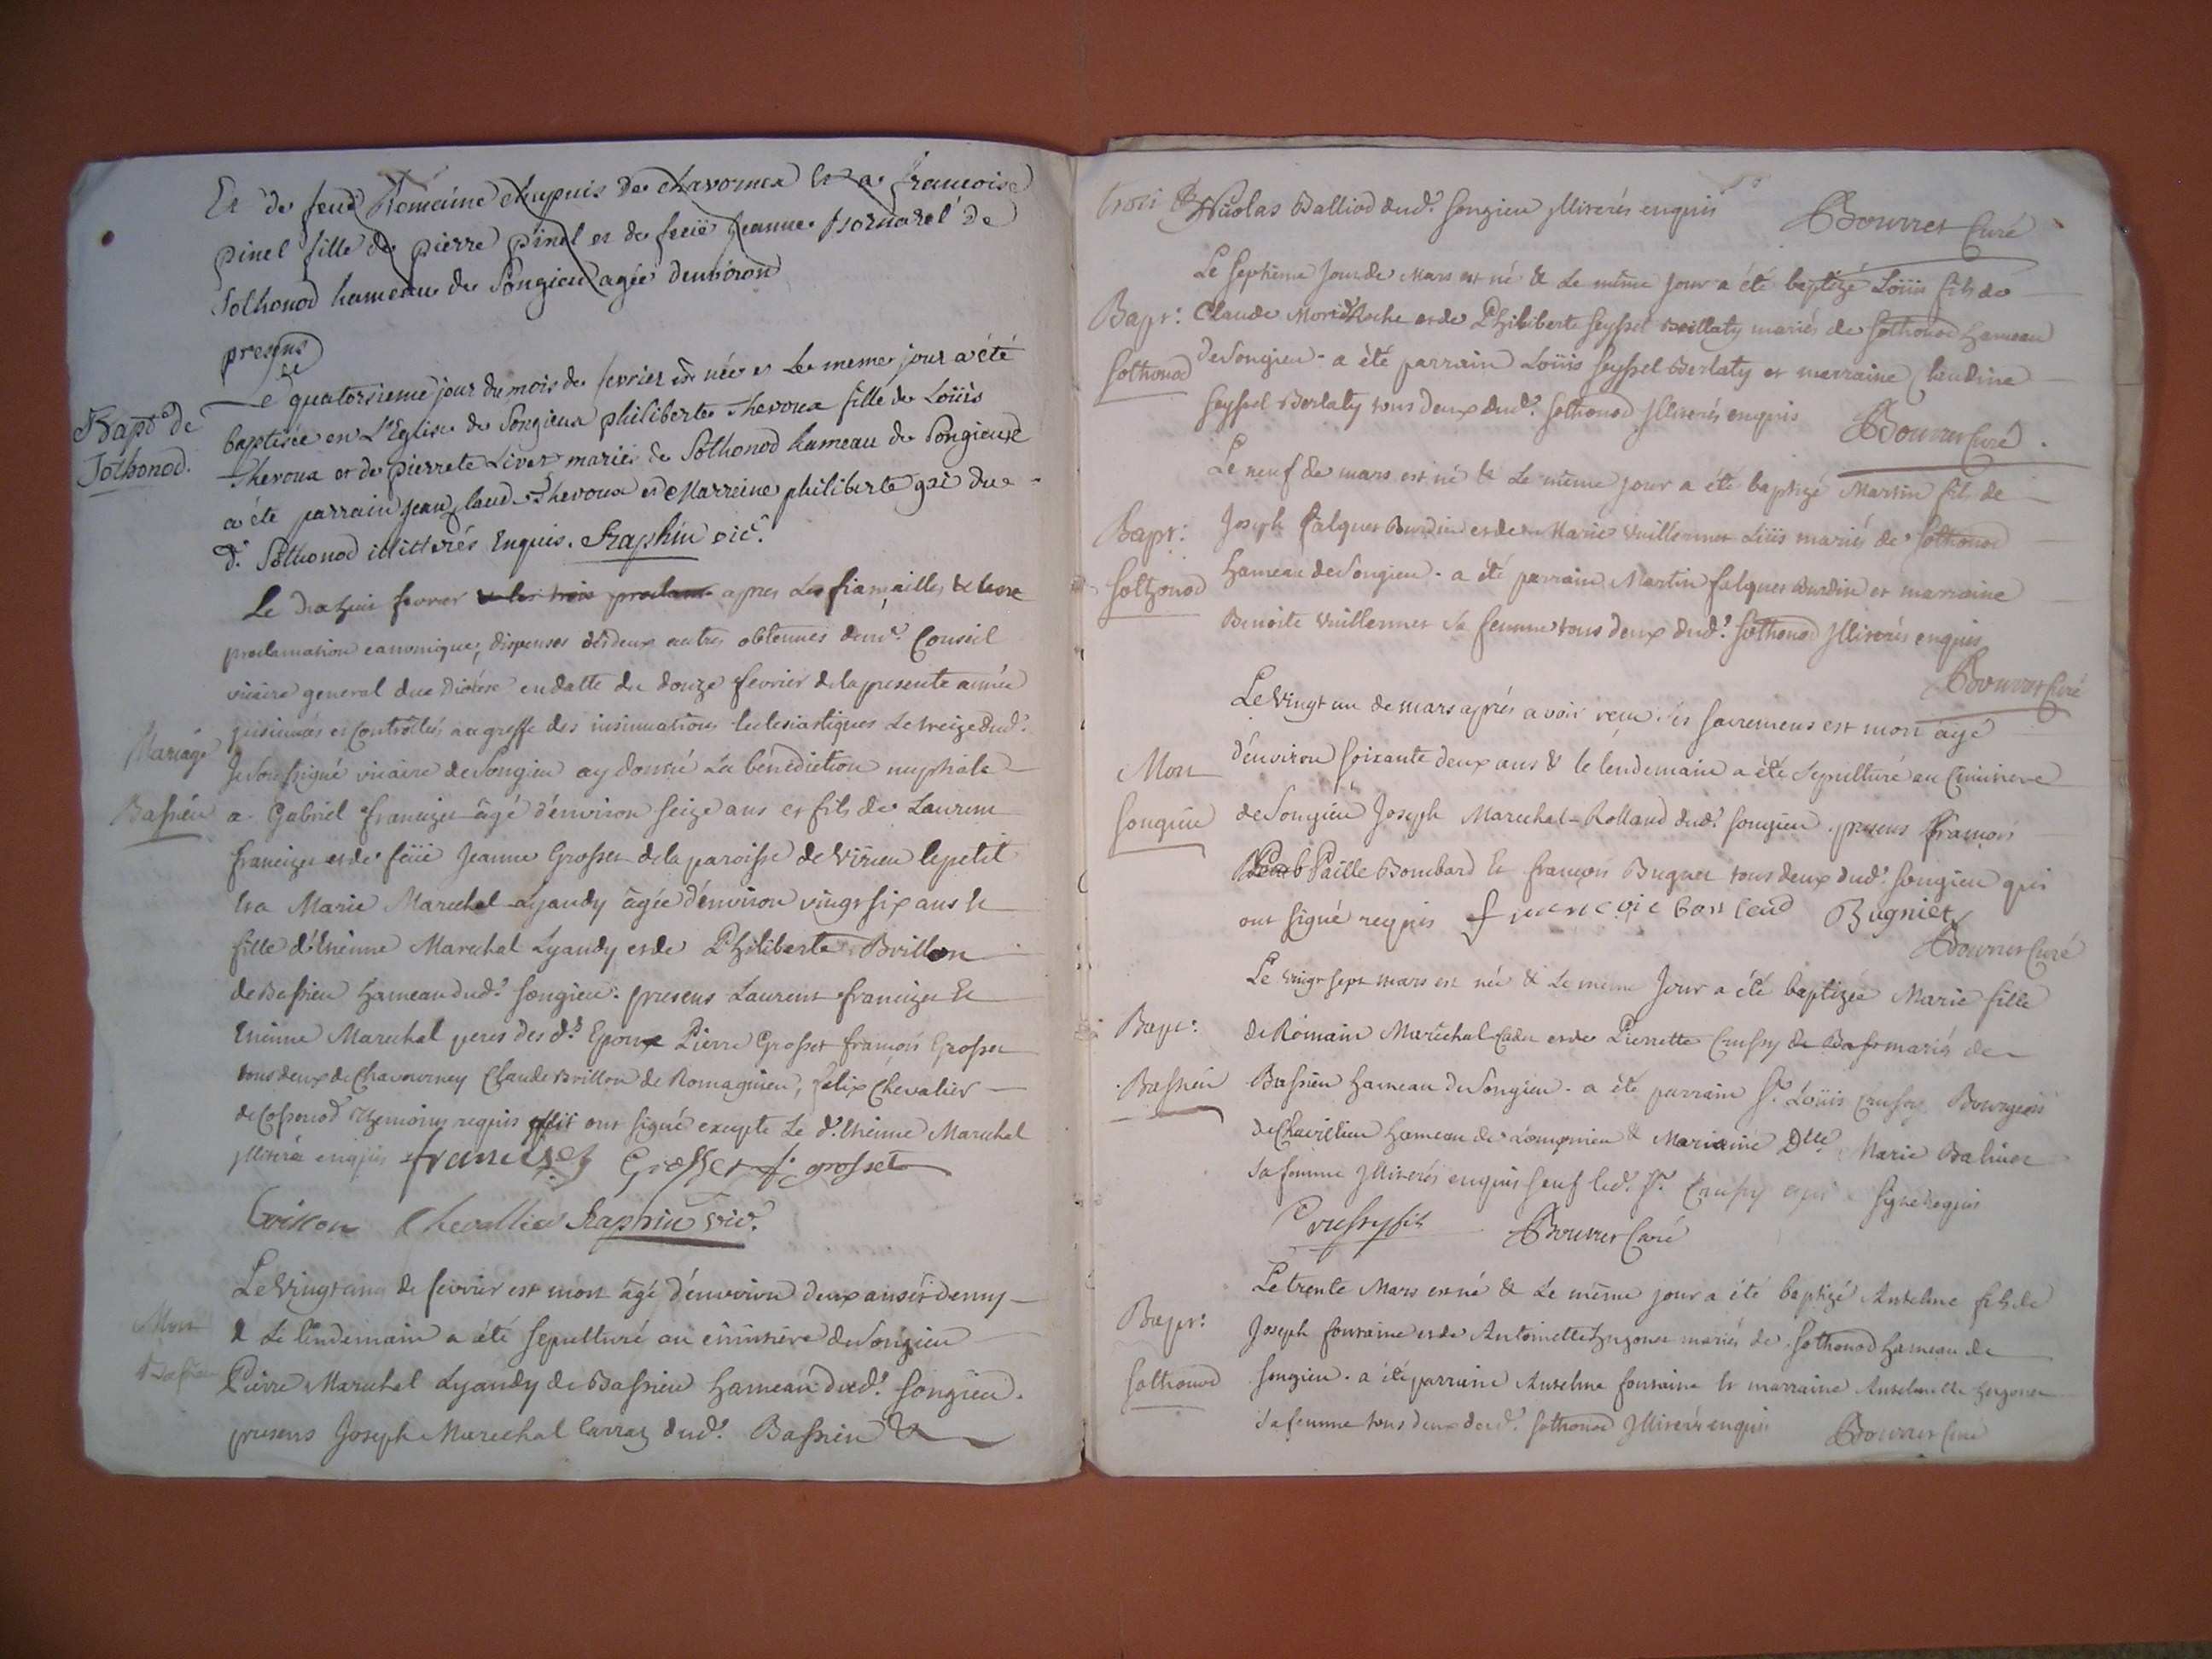 Et de feue Romaine chapuis de chavornex et a francoise
pinel fille de pierre pinel et de feüe jeanne de
Sothonod hameau de Songieu agée denviron
presens
Bapt de
Sothonod.
Le quatorsieme jour du mois de fevrier est née et le meme jour a été
baptisée en L'Eglise de Songieux philiberte Thevoux fille de Loüis
Thevoux et de pierrete Livet mariés de Sothonod hameau de Songieux
a été parrain jean claude Thevoux et Marreine philiberte gai du
d. Sothonod illitterés Enquis. Raphin vic.
Mariage
Bassieu
Le fevrier apres les fiançailles & une
proclamation canonique, dispenses des deux autres obtenues de mr. Conseil
vicaire general du Diocese en datte du douze fevrier de la presente année
insinuées et controllées au greffe des insinuations Eclesiastiques Le treize dud.
Je soussigné vicaire de Songieu ay donné La bénédiction nuptiale
a Gabriel francizet âgé d'environ seize ans et fils de Laurent
francizet et de feüe Jeanne Grosset de la paroisse de Virieu le petit
Et a Marie Marechal Lyandy âgée d'environ vingt six ans et
fille d'Etienne Marechal Lyandy et de Philiberte Brillon
de Bassieu hameau dud. Songieu. presens Laurent francizet Et
Etienne Marechal peres des ds. Epoux Pierre Grosset françois Grosset
tous deux de Chavourney Claude Brillon de Romagnieu, felix Chevalier
de temoins requis qui ont signé exepté Le d. Etienne Marechal
Illiteré enquis francizet Grosset f. grosset
Brillon Chevallier Raphin vic.
Mort
Bassieu
Le Vingt cinq de fevrier est mort âgé d'environ deux ans et demy
& Le lendemain a été sepulturé au cimitière de Songieu
Pierre Marechal Lyandy de Bassieu hameau dud. Songieu.
presens Joseph Marechal Carraz dud. Bassieu &
Nicolas Balliod dud. Songieu Illiterés enquis Bouvret Curé
Bapt:
Sothonod
Le septieme jour de Mars est né & Le même jour a été baptizé Loüis fils de
Claude et de Philiberte Seyssel mariés de Sothonod hameau
de Songieu - a été parrain Loüis Seyssel Berlaty et marraine Claudine
Seyssel Berlaty tous deux dud. Sothonod Illiterés enquis Bouvret Curé.
Bapt:
Sothonod
Le neuf de mars est né & Le même jour a été baptizé Martin fils de
Joseph falquet Bourdin et de Marie Vuillermet mariés de Sothonod
hameau de Songieu - a été parrain Martin falquet Bourdin et marraine
Benoite Vuillermet sa femme tous deux dud. Sothonod Illiterés enquis
Bouvret Curé
Mort
Songieu
Le Vingt un de mars après avoir reçu les sacremens est mort âgé
d'environ soixante deux ans & le lendemain a été sepulturé au Cimitiere
de Songieu Joseph Marechal-Rolland dud. Songieu. presens françois
Paille Bombard Et françois Bugniet tous deux dud. Songieu qui
ont signé requis Bugniet
Bouvret Curé
Bapt:
Bassieu
Le vingt sept mars est née & Le meme Jour a été baptizée Marie fille
de Romain Marechal Cadet et de Pierrette Crussy mariés de
Bassieu hameau de Songieu - a été parrain Sr. Loüis Crussy Bourgeois
de hameau de & Marraine Dlle. Marie
sa femme Illiterés enquis sauf led. Sr. Crussy qui a signé requis
Crussy fils Bouvret Curé
Bapt:
Sothonod
Le trente Mars est né & Le même jour a été baptizé Anthelme fils de
Joseph fontaine et de Antoinette mariés de Sothonod hameau de
Songieu - a été parrain Anthelme fontaine et marraine
sa femme tous deux dud. Sothonod Illiterés enquis Bouvret Curé